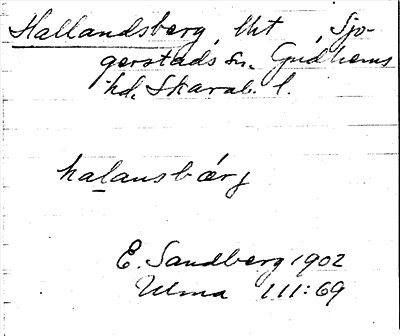 Hallandsberg, lht, Sjo-
gerstads sn. Gudhems
hd. Skarab. l.
halansbærg
E. Sandberg 1902
Ulma 111:69